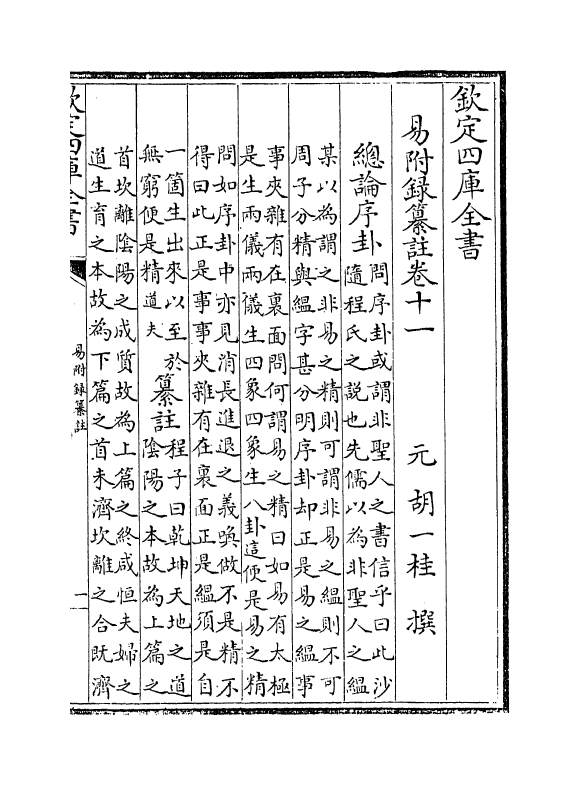 欽定四庫全書
易附録纂註卷十一
元 胡一桂 撰
總論序卦
問序卦或謂非聖人之書信乎曰此沙
隨程氏之說也先儒以為非聖人之緼
某以為謂之非易之精則可謂非易之緼則不可
周子分精與緼字甚分明序卦却正是易之緼事
事夾雜有在裏面問何謂易之精曰如易有太極
是生兩儀兩儀生四象四象生八卦這便是易之精
問如序卦中亦見消長進退之義喚做不是精不
得曰此正是事事夾雜有在裏面正是緼須是自
一箇生出來以至於
無窮便是精道夫
纂註
程子曰乾坤天地之道
陰陽之本故為上篇之
首坎離陰陽之成質故為上篇之終咸恒夫婦之
道生育之本故為下篇之首未濟坎離之合既濟
欽定四庫全書
易附録纂註
一